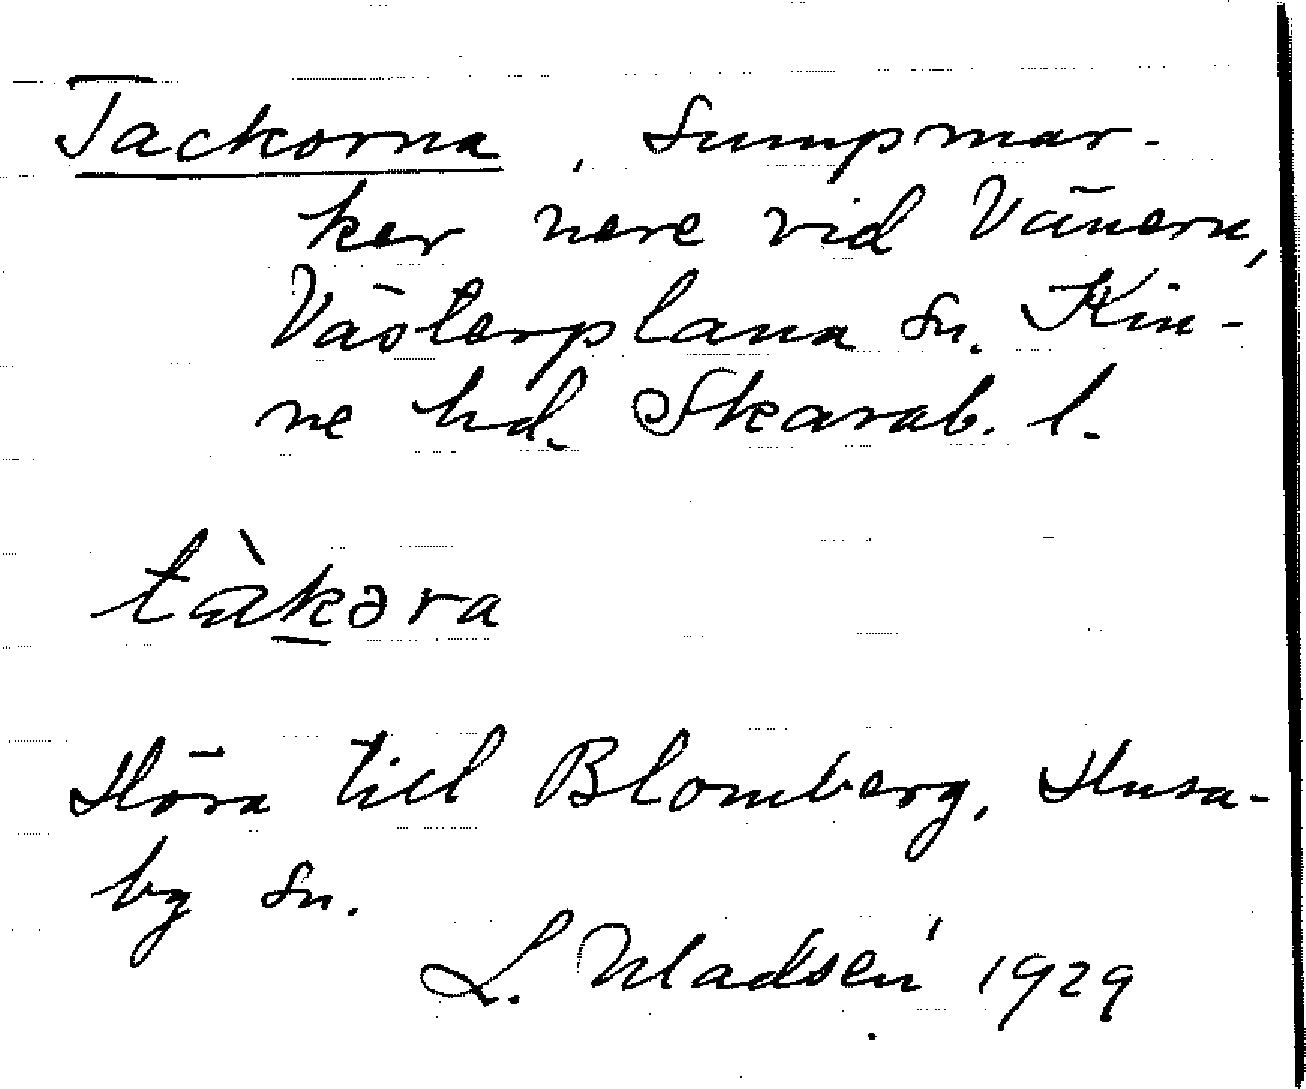 Tackorna, Sumpmar-
ker nere vid Vänern,
Västerplana sn. Kin-
ne hd. Skarab. l.
tàkəra
Höra till Blomberg, Husa-
by sn.
L. Madsén 1929